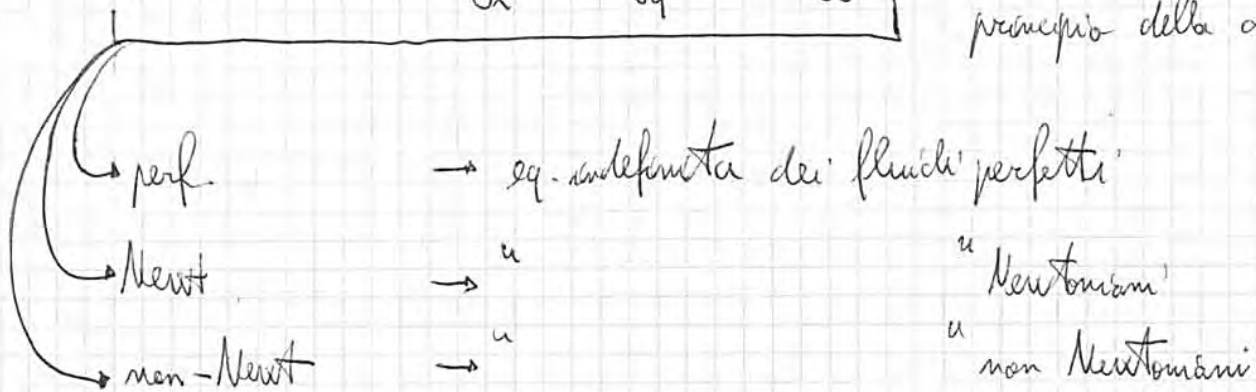 principio della
perf. → eq. indefinita dei fluidi perfetti
Newt → " " Newtoniani
non-Newt → " " non Newtoniani